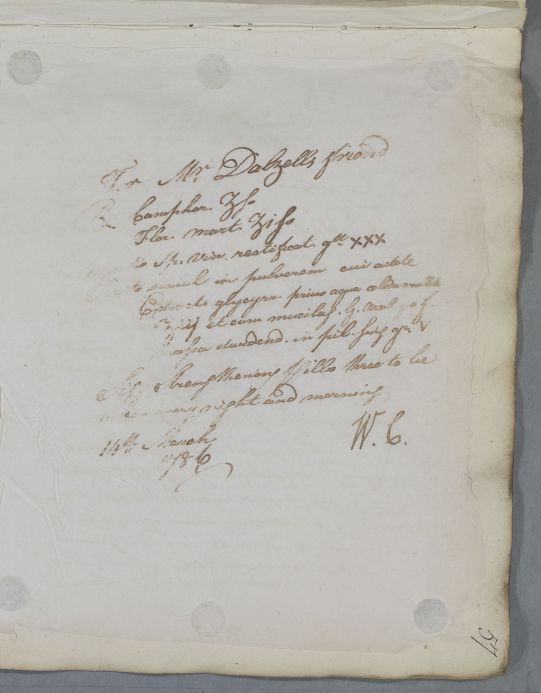 For Mr Dalzells friend
℞ Camphor. ʒſs
Flor. mart. ʒiſs
Sp. vin. rectificat. gtt XXX
simul in pulverem cui adde
Extract. glycyrr. prius aqua
ʒiij et cum mucilag. G. Arab. q. s. f.
massa dividend. in pil. sing. gr. V
Sig. Strengthening Pills three to be
every night and morning
14th March
1786
W. C.
51